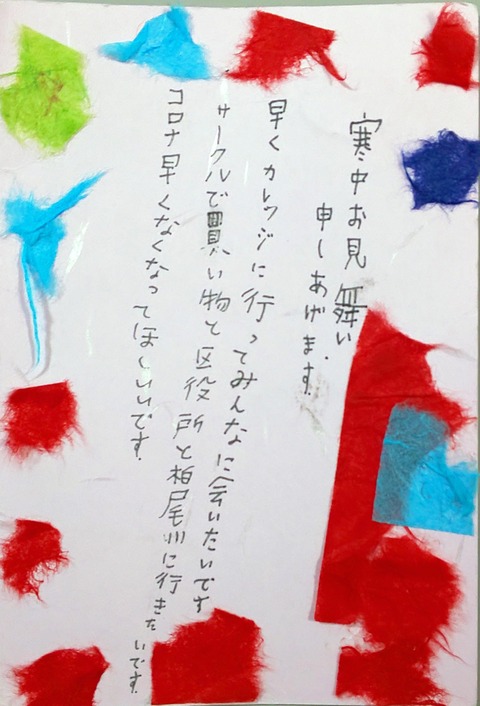 寒中お見舞い
申しあげます.
早くカレッジに行ってみんなに会いたいです
サークルで買い物と区役所と柏尾川に行きたいです.
コロナ早くなくなってほしいいです.